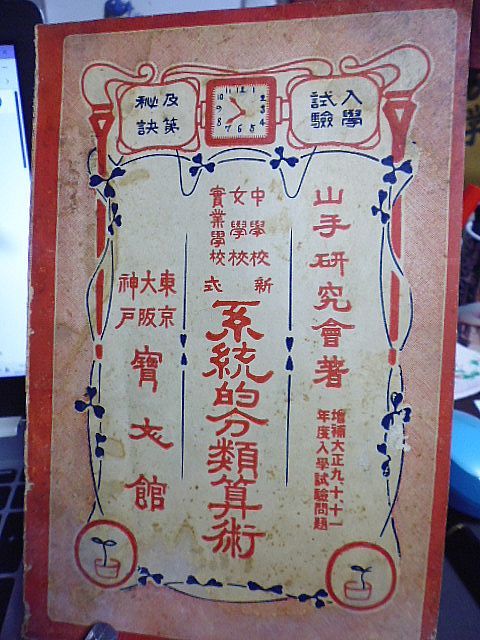 入學
試驗
及第
秘訣
山手研究會著
增補大正九十十一
年度入學試驗問題
中學校
女學校
實業學校
新式
系統的分類算術
東京
大阪
神戸
寶文館